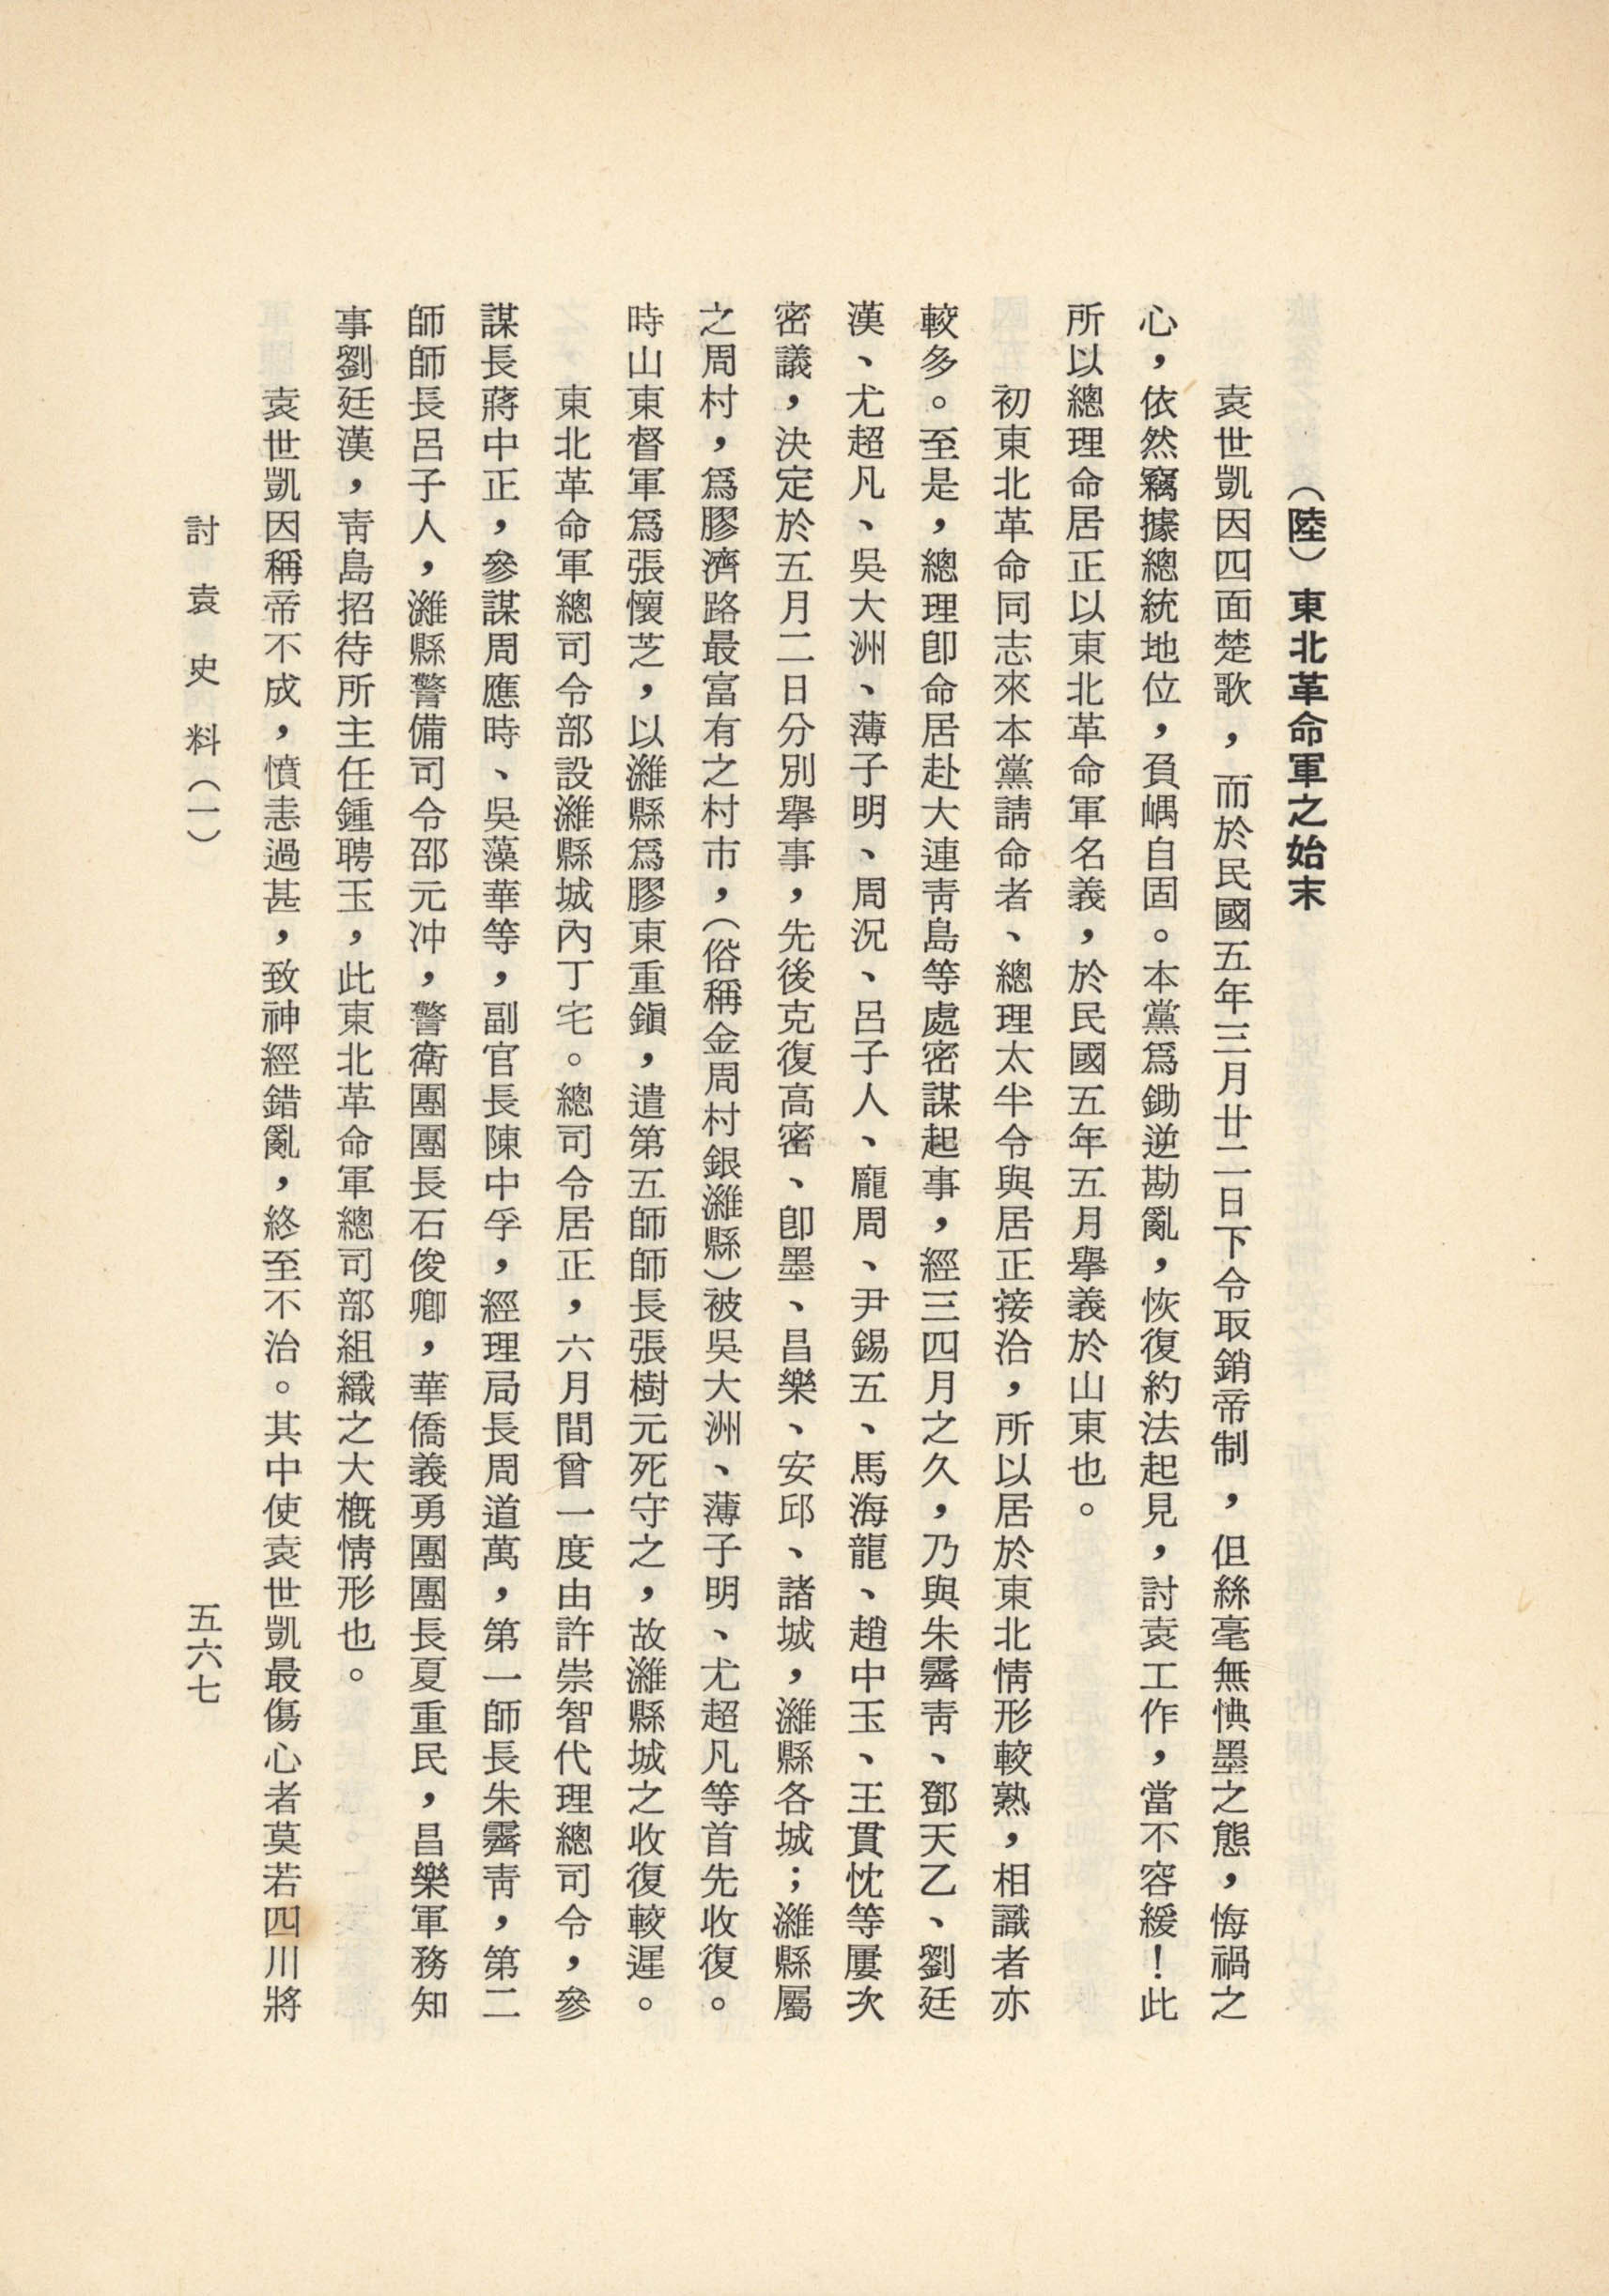 （陸）東北革命軍之始末
袁世凱因四面楚歌，而於民國五年三月廿二日下令取銷帝制，但絲毫無懊墨之態，悔禍之
心，依然竊據總統地位，負嵎自固。本黨爲鋤逆勘亂，恢復約法起見，討袁工作，當不容緩！此
所以總理命居正以東北革命軍名義，於民國五年五月舉義於山東也。
初東北革命同志來本黨請命者、總理太半令與居正接洽，所以居於東北情形較熟，相識者亦
較多。至是，總理卽命居赴大連靑島等處密謀起事，經三四月之久，乃與朱霽靑、鄧天乙、劉廷
漢、尤超凡、吳大洲、薄子明、周況、呂子人、龐周、尹錫五、馬海龍、趙中玉、王貫忱等屢次
密議，決定於五月二日分別擧事，先後克復高密、卽墨、昌樂、安邱、諸城，濰縣各城；濰縣屬
之周村，爲膠濟路最富有之村市，（俗稱金周村銀濰縣）被吳大洲、薄子明、尤超凡等首先收復。
時山東督軍爲張懷芝，以濰縣爲膠東重鎭，遣第五師師長張樹元死守之，故濰縣城之收復較遲。
東北革命軍總司令部設濰縣城內丁宅。總司令居正，六月間曾一度由許崇智代理總司令，參
謀長蔣中正，參謀周應時、吳藻華等，副官長陳中孚，經理局長周道萬，第一師長朱霽靑，第二
師師長呂子人，濰縣警備司令邵元冲，警衛團團長石俊卿，華僑義勇團團長夏重民，昌樂軍務知
事劉廷漢，靑島招待所主任鍾聘玉，此東北革命軍總司部組織之大概情形也。
袁世凱因稱帝不成，憤恚過甚，致神經錯亂，終至不治。其中使袁世凱最傷心者莫若四川將
討袁史料（一）
五六七